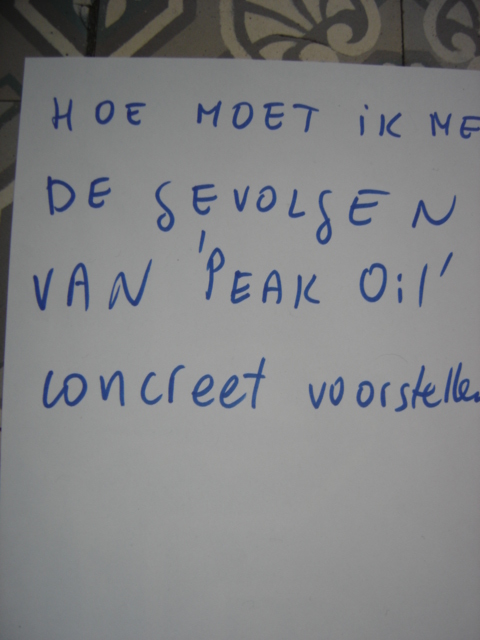 HOE MOET iK ME
DE GEVOLGEN
VAN 'PEAK Oil'
concreet voorstellen